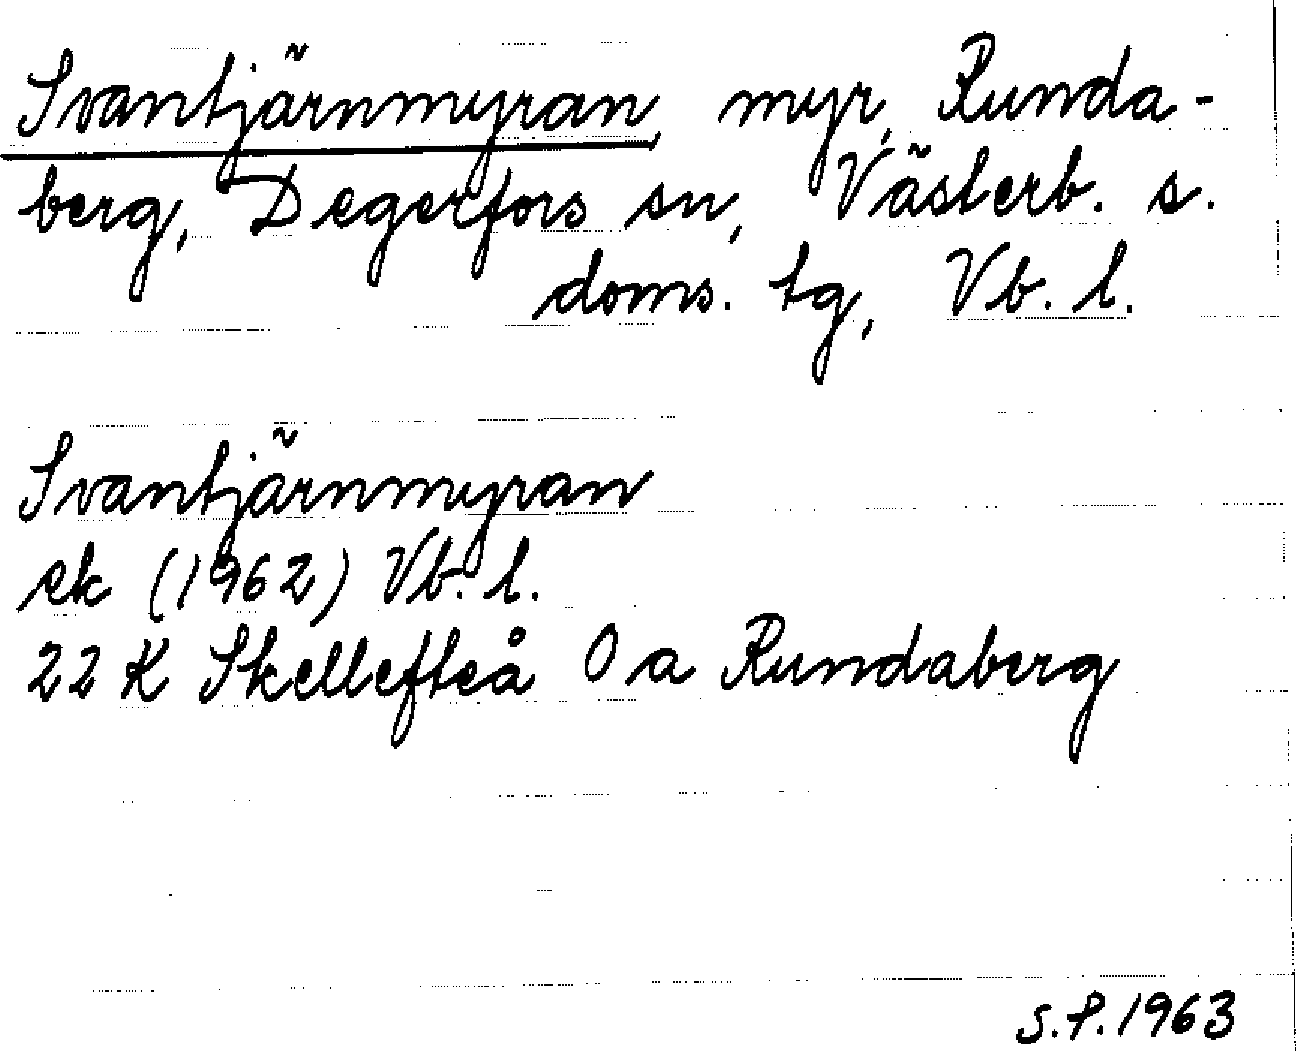 Svantjärnmyran, myr, Runda-
berg, Degerfors sn, Västerb. s.
doms. tg, Vb. l.
Svantjärnmyran
ek (1962) Vb. l.
22 K Skellefteå 0 a Rundaberg
S.P. 1963